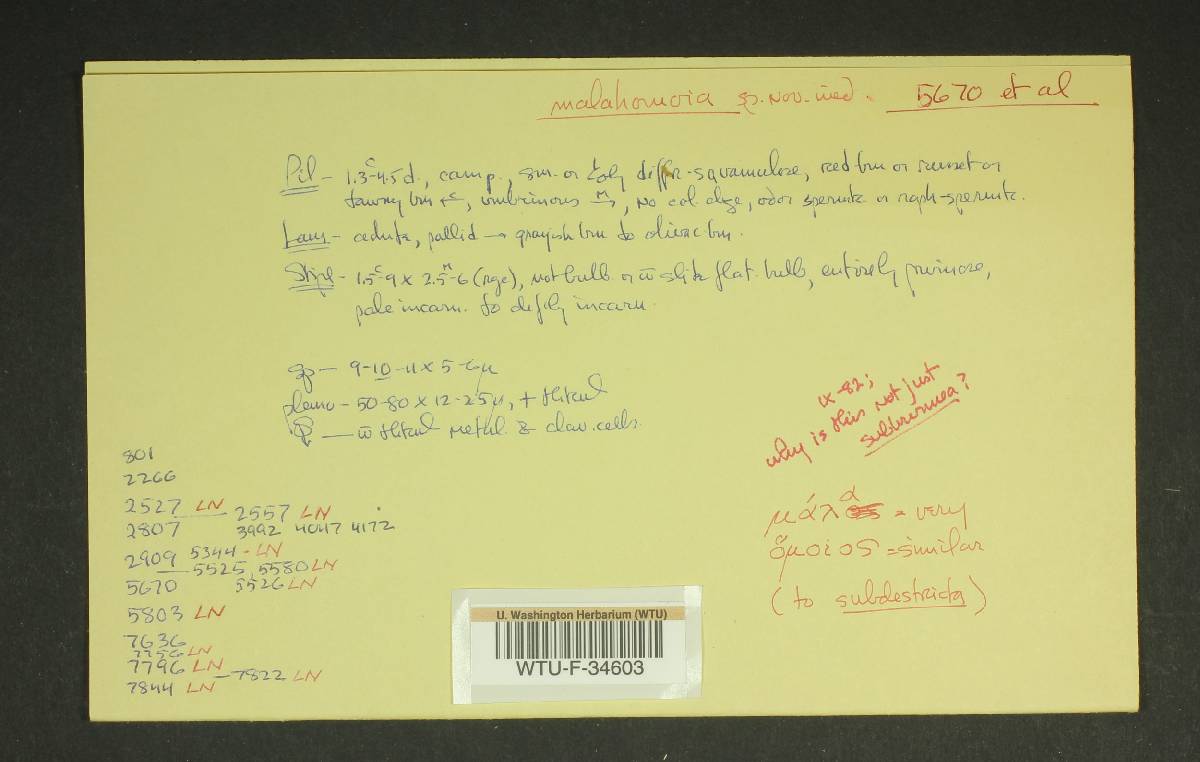 malahomoia sp. nov. ined. 5670 et al
Pil - 1.3-4.5 d., camp., sm. or diffr-squamulose, red brn or russet or
tawny brn, umbrinous, no col. chge, odor spermtc or raph-spermtc.
Lam - adnate, pallid → grayish brn to olivac brn.
Stipe - 1.5-9 x 2.5-6 (age), not bulb or w̄ slite flat bulb, entirely pruinose,
pale incarn. to defly incarn.
sp - 9-10-11 x 5-6µ
pleuro - 50-80 x 12-25µ, + thkwl
w̄ thkwl metul. & clav. cells.
IX-82;
why is this not just
subbrunnea?
801
2266
2527 LN 2557 LN
2807 3992 4047 4172
2909 5344 - LN
5525, 5580 LN
5670 5526 LN
5803 LN
7636
7756 LN
7796 LN
7822 LN
7844 LN
μάλα = very
ὅμοιος = similar
(to subdestricta)
U. Washington Herbarium (WTU)
WTU-F-34603